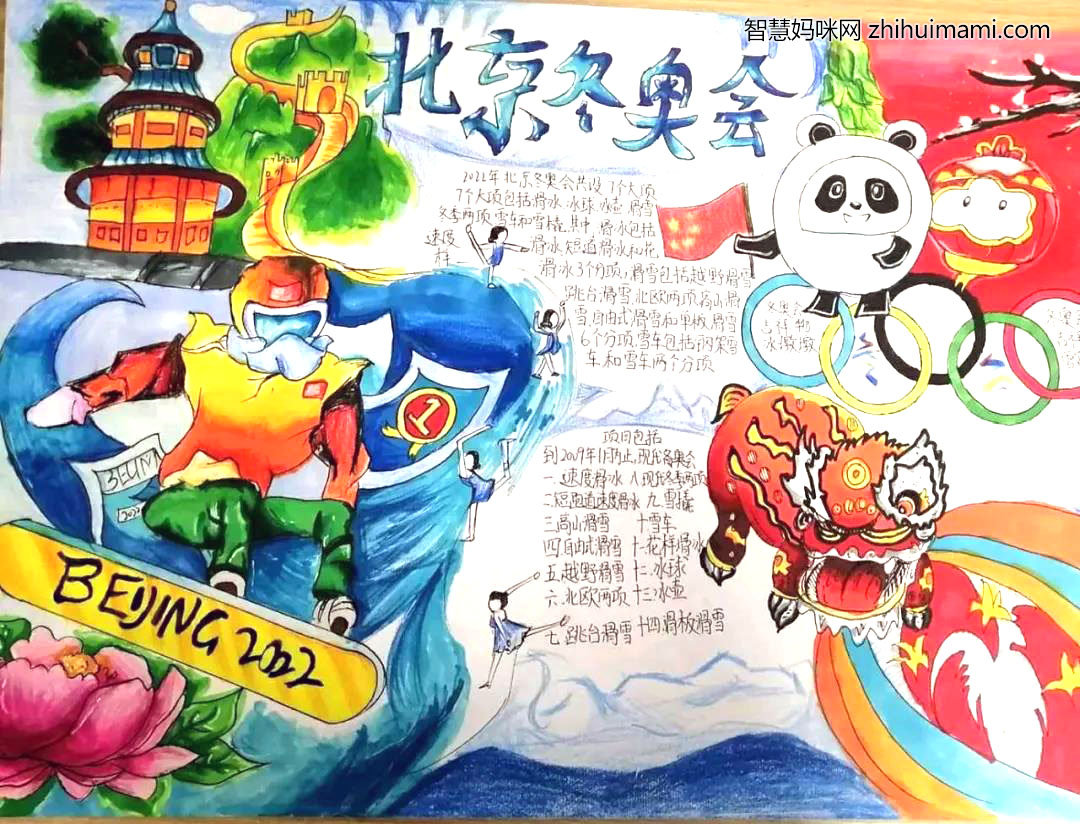 智慧妈咪网 zhihuimami.com
北京冬奥会
2022年北京冬奥会共设7个大项
7个大项包括滑冰.冰球.冰壶.滑雪
冬季两项.雪车和雪橇.其中,滑冰包括
速度滑冰.短道滑冰和花
样滑冰3个分项,滑雪包括越野滑雪
跳台滑雪.北欧两项.高山滑
雪.自由式滑雪和单板滑雪
6个分项.雪车包括钢架雪
车和雪车两个分项
冬奥会
吉祥物
冰墩墩
1
BEIJIN
2022
BEIJING 2022
项目包括
到2009年1月为止,现代冬奥会
一.速度滑冰 八.现代冬季两项
二.短跑道速度滑冰 九.雪橇
三.高山滑雪 十.雪车
四.自由式滑雪 十一.花样滑冰
五.越野滑雪 十二.冰球
六.北欧两项 十三.冰壶
七.跳台滑雪 十四.滑板滑雪